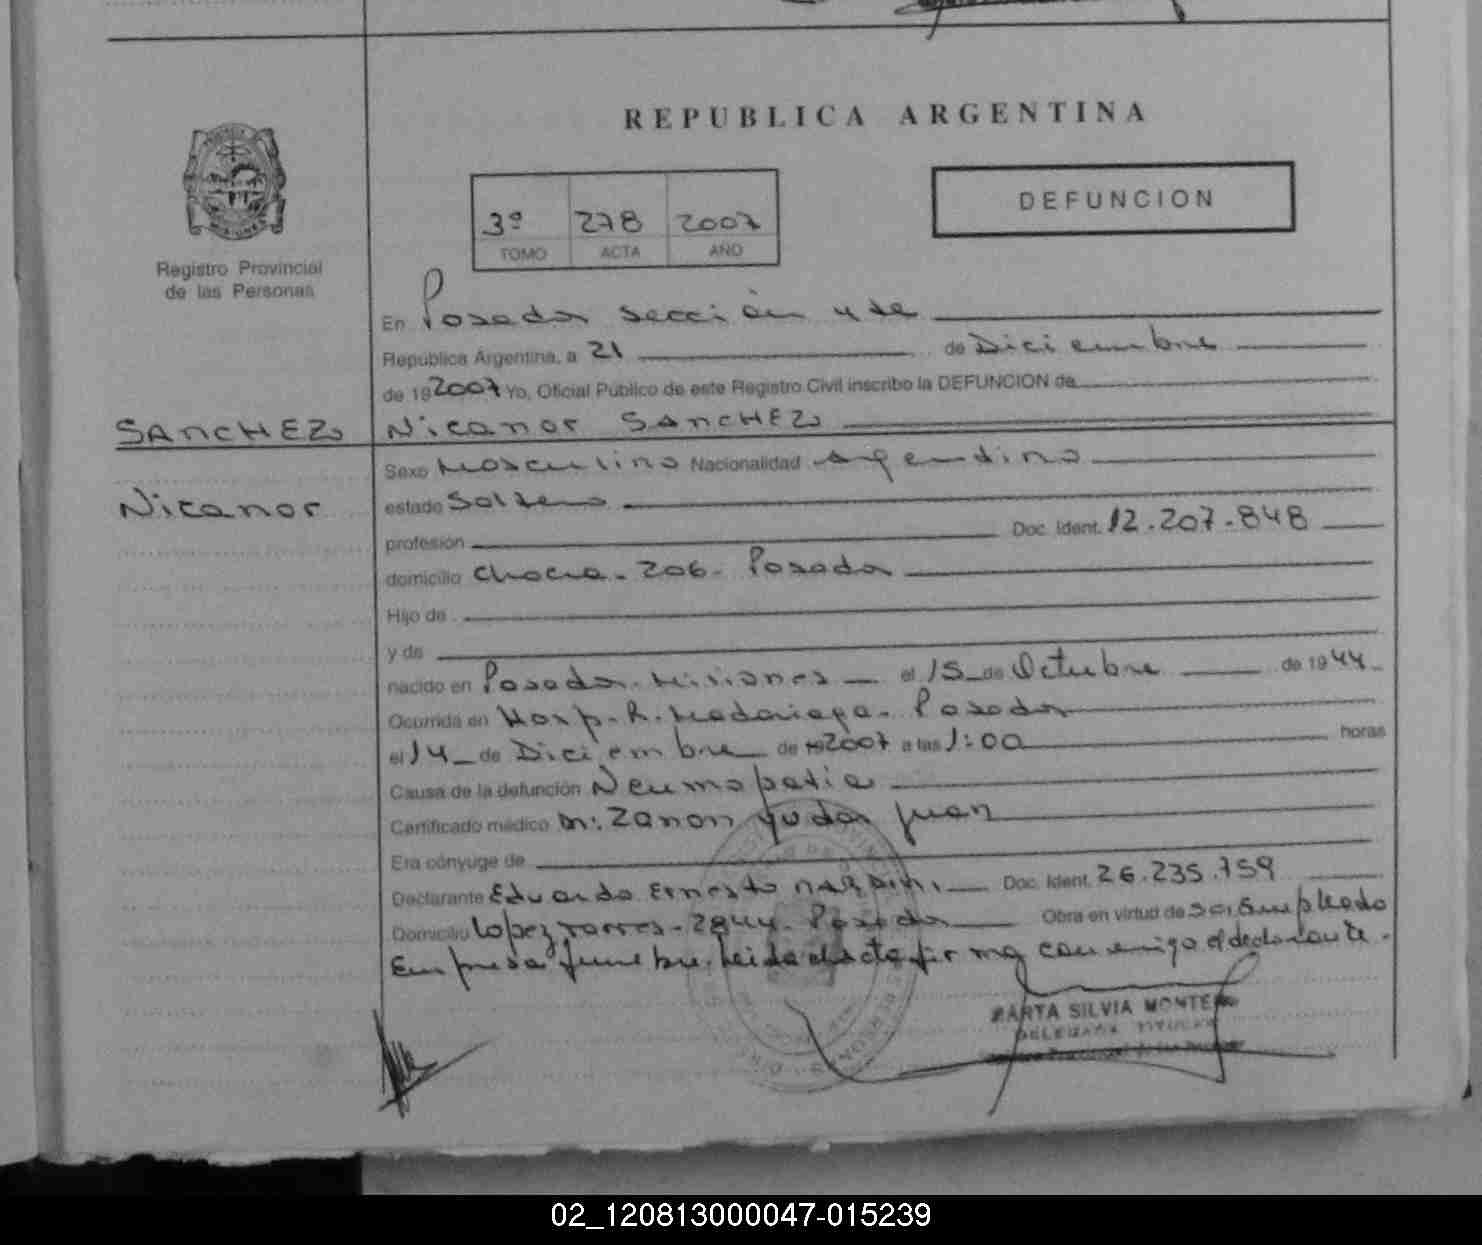 REPUBLICA ARGENTINA
DEFUNCION
3º 278 2007
TOMO ACTA AÑO
Registro Provincial
de las Personas
En Posadas sección
República Argentina, a 21 de Diciembre
de 19 2007 Yo, Oficial Público de este Registro Civil inscribo la DEFUNCION de
SANCHEZ Nicanor SANCHEZ
Sexo Masculino Nacionalidad Argentino
Nicanor
estado Soltero
profesión Doc. Ident. 12.207.848
domicilio 206 - Posadas
Hijo de
y de
nacido en Posadas - Misiones el 15 de Octubre de 1944
Ocurrida en Hosp. R. Madariaga - Posadas
el 14 de Diciembre de 19 2007 a las 1:00 horas
Causa de la defunción Neumopatia
Certificado médico Dr: Zanon Juan
Era cónyuge de
Declarante Eduardo Ernesto NARDINI Doc. Ident. 26.235.759
Domicilio Lopez Torres - 2844 - Posadas Obra en virtud de ser Empleado
Empresa funebre. Leida el acta firma conmigo el declarante.
MARTA SILVIA
DELEGADA TITULAR
02_120813000047-015239